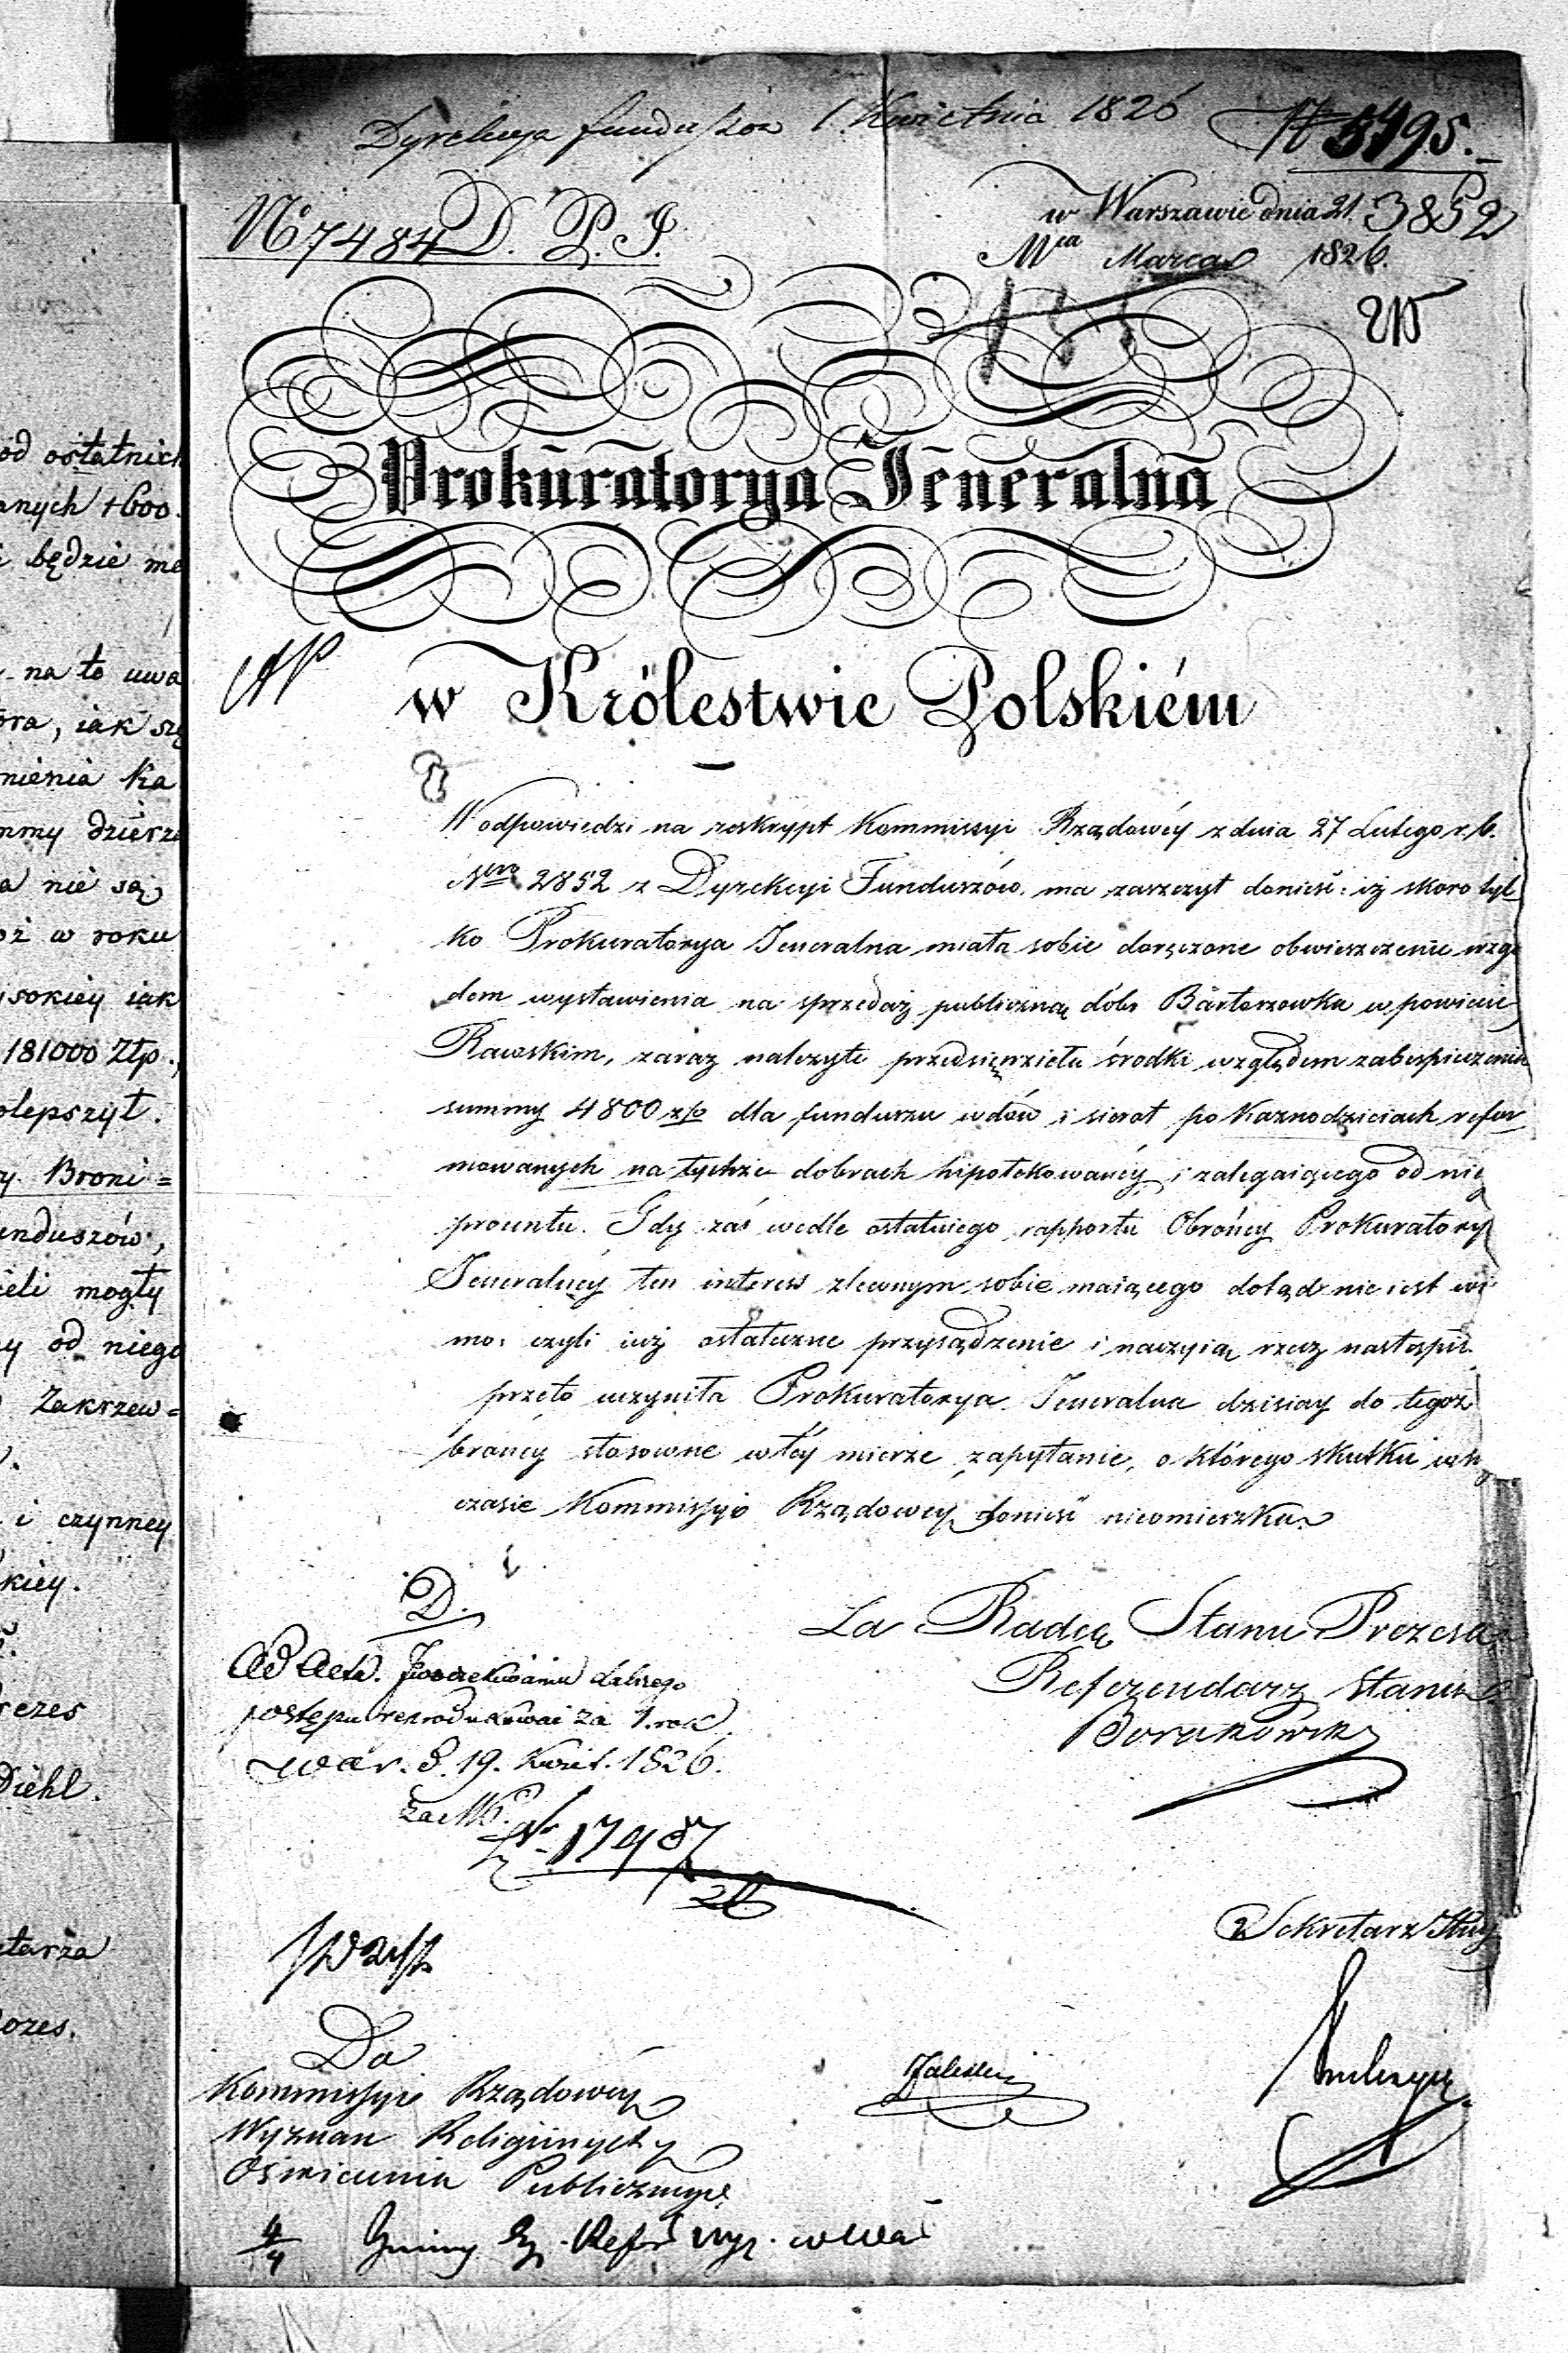 od ostatnich
anych 1600.
będzie
na to uwa
ora, iak
nienia Ka
mmy dzierz
a nie są
oż w roku
ysokiey iak
181000 Złp.,
olepszył.
y. Broni=
unduszów,
ieli mogły
y od niego
Zakrzew=
i czynney
kiey.
rezes
Diehl.
tarza
ozes.
Dyrekcya funduszow 1 Kwietnia 1826
N 5495.
w Warszawie dnia 21. 3852
No 7484 D. P. J.
Mca Marca 1826.
Prokuratorya Jeneralna
w Królestwie Polskiém
W odpowiedzi na reskrypt Kommissyi Rządowéy z dnia 27 Lutego r. b.
Nero 2852 z Dyrekcyi Funduszów, ma zaszczyt donieść: iż skoro tyl
ko Prokuratorya Jeneralna miała sobie doręczone obwieszczenie wzglę
dem wystawienia na sprzedaż publiczną dóbr Bartoszowka w powiecie
Rawskim, zaraz należyte przedsięwzięła środki względem zabespieczenia
summy 4800 złp dla funduszu wdów i sierot po Kaznodzieiach refor
mowanych na tychże dobrach hipotekowanéy i zalegaiącego od niéy
procentu. Gdy zaś wedle ostatniego rapportu Obrońcy Prokuratoryi
Jeneralnéy ten interess zleconym sobie maiącego dotąd nie iest wia
mo: czyli iuż ostateczne przysądzenie i na czyią rzecz nastąpił
przeto uczyniła Prokuratorya Jeneralna dzisiay do tegoż
brońcy stosowne w téy mierze zapytanie, o którego skutku w
czasie Kommissyi Rządowéy donieść nieomieszka.
D.
Za Radcę Stanu Prezesa
Ad Acta. Po oczekiwaniu dalszego
Referendarz Stanu
postępu reprodukować za 1. rok
War. d. 19. Kwiet. 1826.
Za
Nr 17987
26
Sekretarz
Do
Kommissyi Rządowéy
Zaleski
Wyznań Religiinych y
Oświecenia Publicznego
4/4 Gminy Ew. Refor wyz. w War